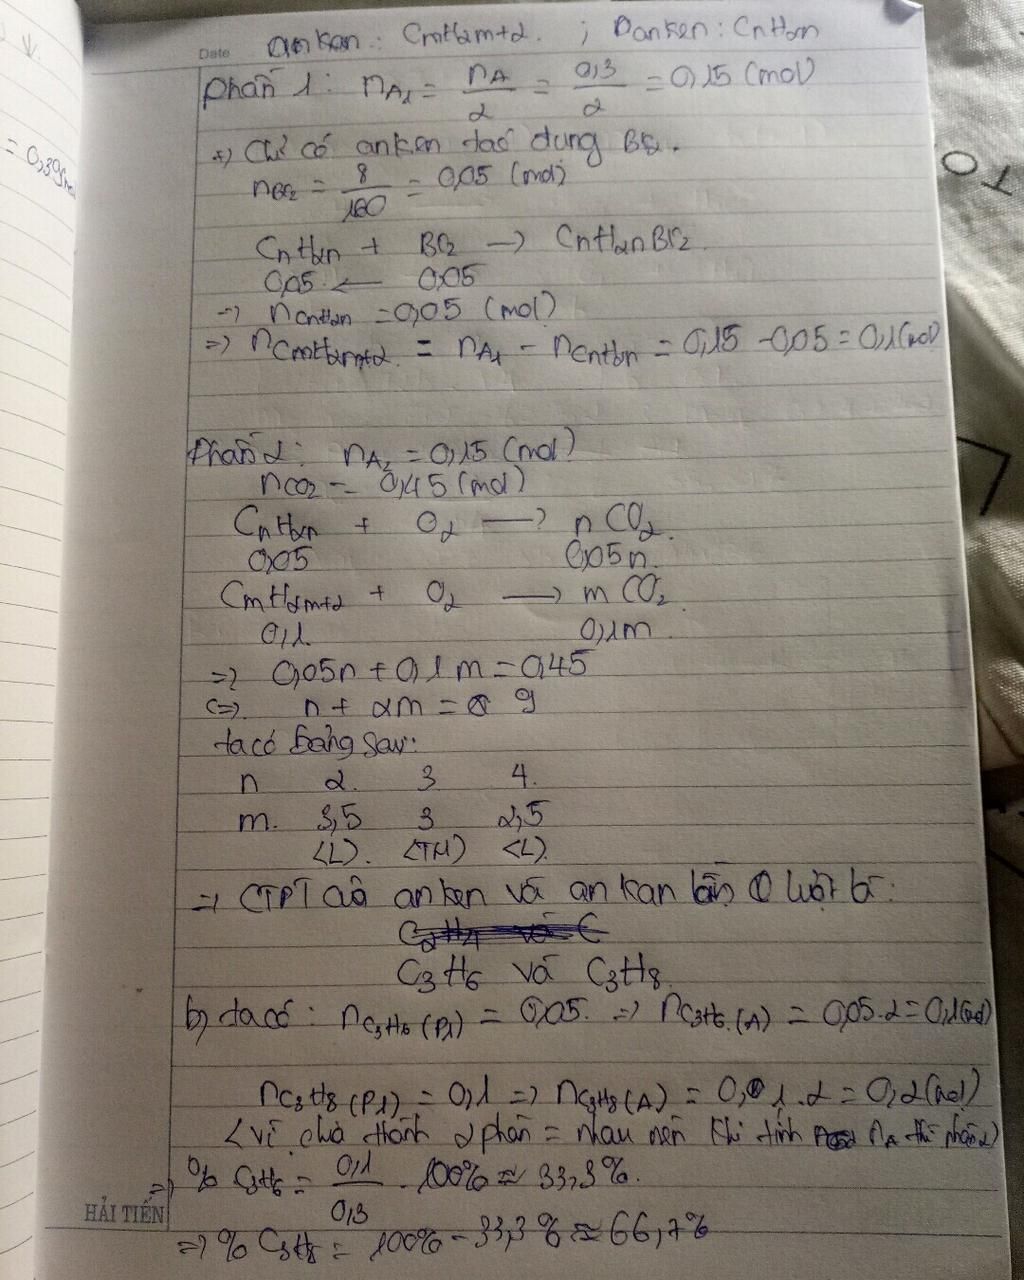 Date ankan : CmH2m+2 . ; Danken : CnH2n
Phần 1 : nA1 = nA/2 = 0,3/2 = 0,15 (mol)
+) Chỉ có anken tác dụng Br2.
nBr2 = 8/160 = 0,05 (mol)
CnH2n + Br2 → CnH2nBr2
0,05 ← 0,05
→ nCnH2n = 0,05 (mol)
=> nCmH2m+2 = nA1 - nCnH2n = 0,15 - 0,05 = 0,1 (mol)
Phần 2 : nA2 = 0,15 (mol)
nCO2 = 0,45 (mol)
CnH2n + O2 → n CO2
0,05 0,05n.
CmH2m+2 + O2 → m CO2
0,1 0,1m
=> 0,05n + 0,1m = 0,45
<=> n + 2m = 9
ta có bảng sau:
n 2 3 4.
m. 3,5 3 2,5
<L>. <TM> <L>
=> CTPT của anken và ankan lần lượt là:
C3H6 và C3H8
b) ta có : nC3H6 (P1) = 0,05. => nC3H6 (A) = 0,05.2 = 0,1 (mol)
nC3H8 (P1) = 0,1 => nC3H8 (A) = 0,1 . 2 = 0,2 (mol)
<vì chia thành 2 phần = nhau nên khi tính nA thì nhân 2>
=> % C3H6 = 0,1/0,3 . 100% ≈ 33,3%.
=> % C3H8 = 100% - 33,3% ≈ 66,7%
HẢI TIẾN